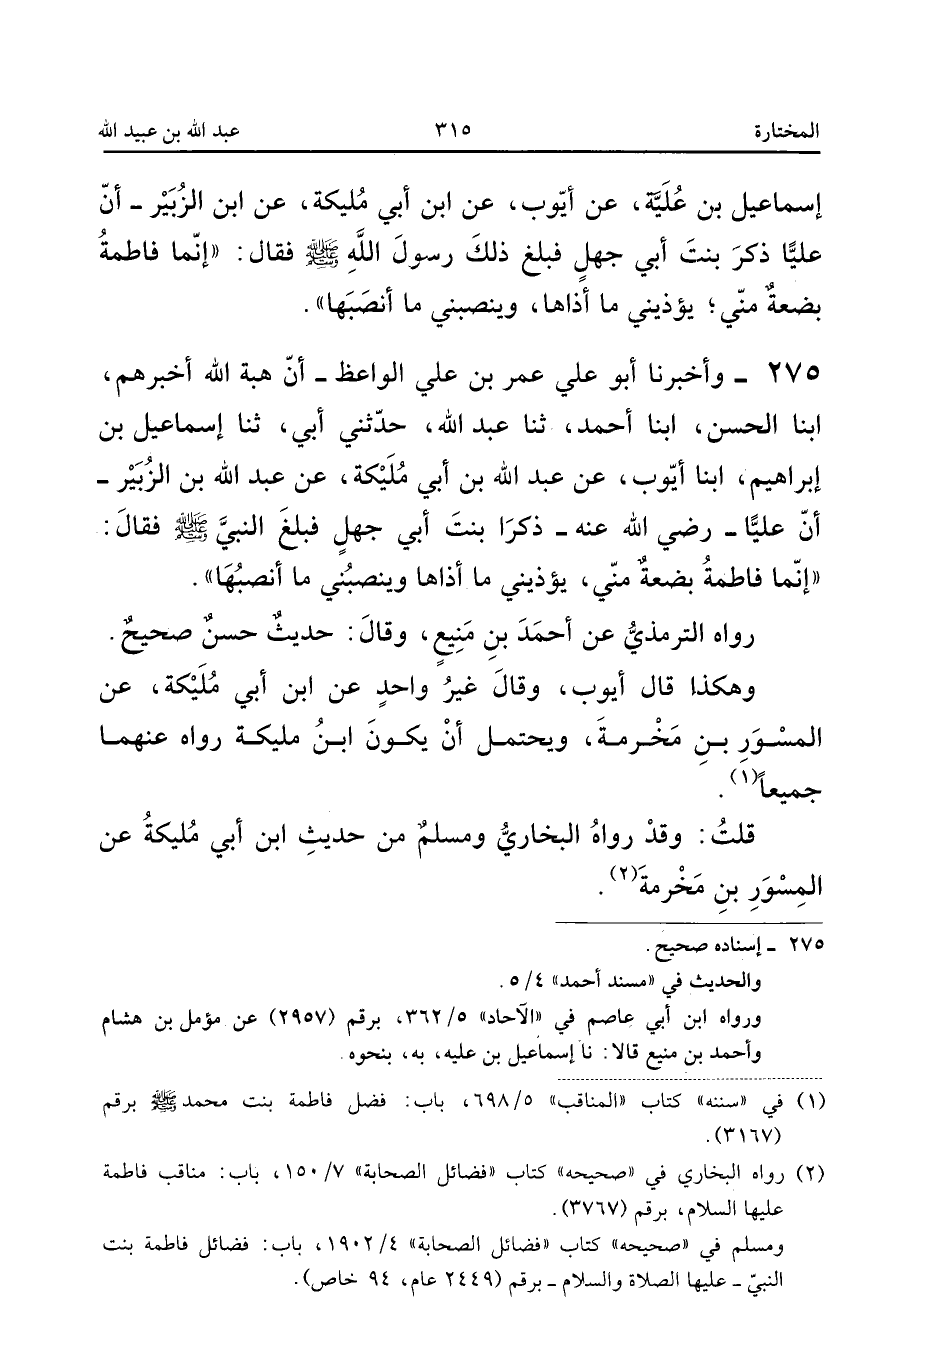 المختارة ٣١٥ عبد الله بن عبيد الله
إسماعيل بن عُلَيَّة، عن أيّوب، عن ابن أبي مُليكة، عن ابن الزُبَيْر ـ أنّ
عليًّا ذكرَ بنتَ أبي جهلٍ فبلغ ذلكَ رسولَ اللَّهِ ﷺ فقال: «إنّما فاطمةُ
بضعةٌ منّي؛ يؤذيني ما أذاها، وينصبني ما أنصَبَها».
٢٧٥ ـ وأخبرنا أبو علي عمر بن علي الواعظ ـ أنّ هبة الله أخبرهم،
ابنا الحسن، ابنا أحمد، ثنا عبد الله، حدّثني أبي، ثنا إسماعيل بن
إبراهيم، ابنا أيّوب، عن عبد الله بن أبي مُلَيْكة، عن عبد الله بن الزُبَيْر ـ
أنّ عليًّا ـ رضي الله عنه ـ ذكرَا بنتَ أبي جهلٍ فبلغَ النبيَّ ﷺ فقالَ:
«إنّما فاطمةُ بضعةٌ منّي، يؤذيني ما أذاها وينصبُني ما أنصبُهَا».
رواه الترمذيُّ عن أحمَدَ بنِ مَنِيعٍ، وقالَ: حديثٌ حسنٌ صحيحٌ.
وهكذا قال أيوب، وقالَ غيرُ واحدٍ عن ابن أبي مُلَيْكة، عن
المسْوَرِ بنِ مَخْرمةَ، ويحتمل أنْ يكونَ ابنُ مليكة رواه عنهما
جميعاً(١).
قلتُ: وقدْ رواهُ البخاريُّ ومسلمٌ من حديثِ ابن أبي مُليكةُ عن
المِسْوَرِ بنِ مَخْرمةَ(٢).
٢٧٥ ـ إسناده صحيح.
والحديث في «مسند أحمد» ٤/ ٥.
ورواه ابن أبي عاصم في «الآحاد» ٥/ ٣٦٢، برقم (٢٩٥٧) عن مؤمل بن هشام
وأحمد بن منيع قالا: نا إسماعيل بن عليه، به، بنحوه.
(١) في «سننه» كتاب «المناقب» ٥/ ٦٩٨، باب: فضل فاطمة بنت محمد ﷺ برقم
(٣١٦٧).
(٢) رواه البخاري في «صحيحه» كتاب «فضائل الصحابة» ٧/ ١٥٠، باب: مناقب فاطمة
عليها السلام، برقم (٣٧٦٧).
ومسلم في «صحيحه» كتاب «فضائل الصحابة» ٤/ ١٩٠٢، باب: فضائل فاطمة بنت
النبيّ ـ عليها الصلاة والسلام ـ برقم (٢٤٤٩ عام، ٩٤ خاص).